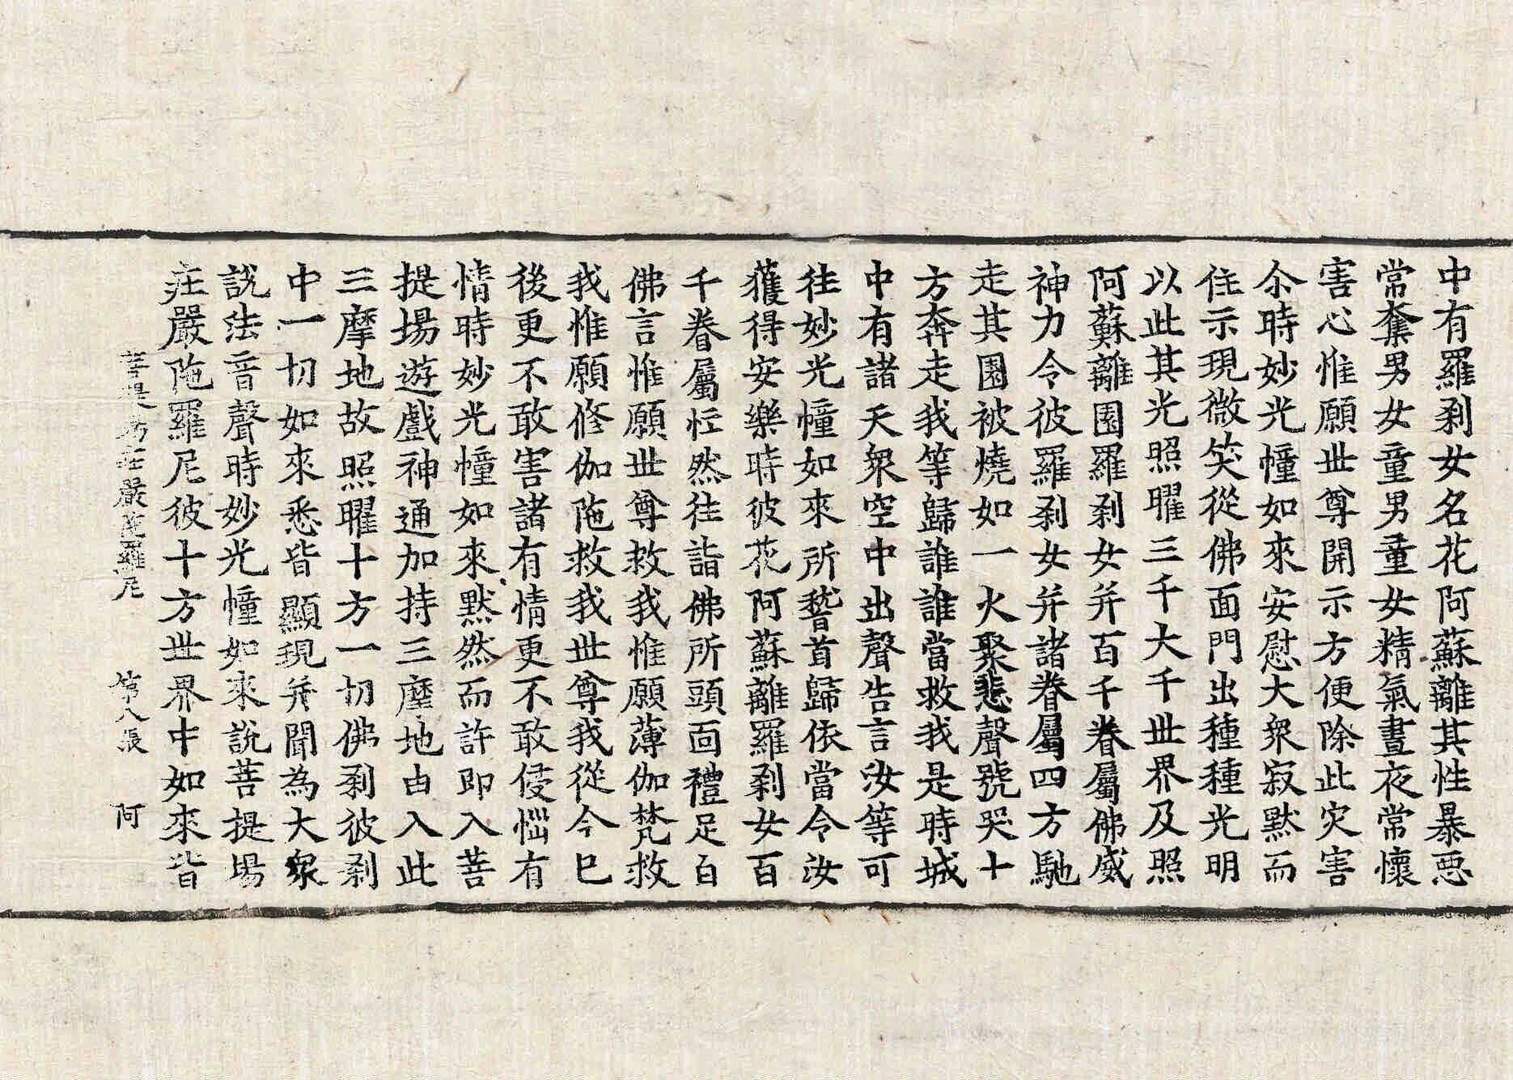 中有羅刹女名花阿蘇離其性暴惡
常奪男女童男童女精氣晝夜常懷
害心惟願世尊開示方便除此灾害
尒時妙光幢如來安慰大衆寂默而
住示現微笑從佛面門出種種光明
以此其光照曜三千大千世界及照
阿蘇離園羅刹女并百千眷屬佛威
神力令彼羅刹女并諸眷屬四方馳
走其園被燒如一火聚悲聲號哭十
方奔走我等歸誰誰當救我是時城
中有諸天衆空中出聲告言汝等可
往妙光幢如來所稽首歸依當令汝
獲得安樂時彼花阿蘇離羅刹女百
千眷屬恇然往詣佛所頭面禮足白
佛言惟願世尊救我惟願薄伽梵救
我惟願修伽陁救我世尊我從今已
後更不敢害諸有情更不敢侵惱有
情時妙光幢如來默然而許即入菩
提場遊戲神通加持三摩地由入此
三摩地故照曜十方一切佛刹彼刹
中一切如來悉皆顯現并聞為大衆
說法音聲時妙光幢如來說菩提場
莊嚴陁羅尼彼十方世界中如來皆
菩提場莊嚴陁羅尼 第八張 阿